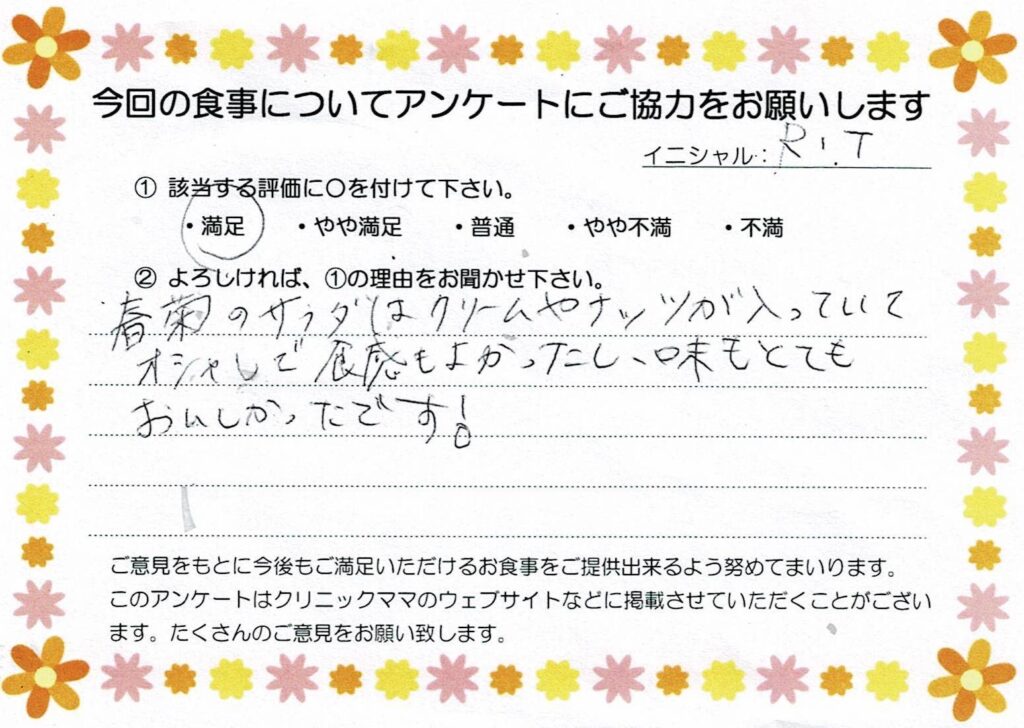 今回の食事についてアンケートにご協力をお願いします
イニシャル：R.T
① 該当する評価に〇を付けて下さい。
・満足 ・やや満足 ・普通 ・やや不満 ・不満
② よろしければ、①の理由をお聞かせ下さい。
春菊のサラダはクリームやナッツが入っていて
オシャレで食感もよかったし、味もとても
おいしかったです!
ご意見をもとに今後もご満足いただけるお食事をご提供出来るよう努めてまいります。
このアンケートはクリニックママのウェブサイトなどに掲載させていただくことがござい
ます。たくさんのご意見をお願い致します。